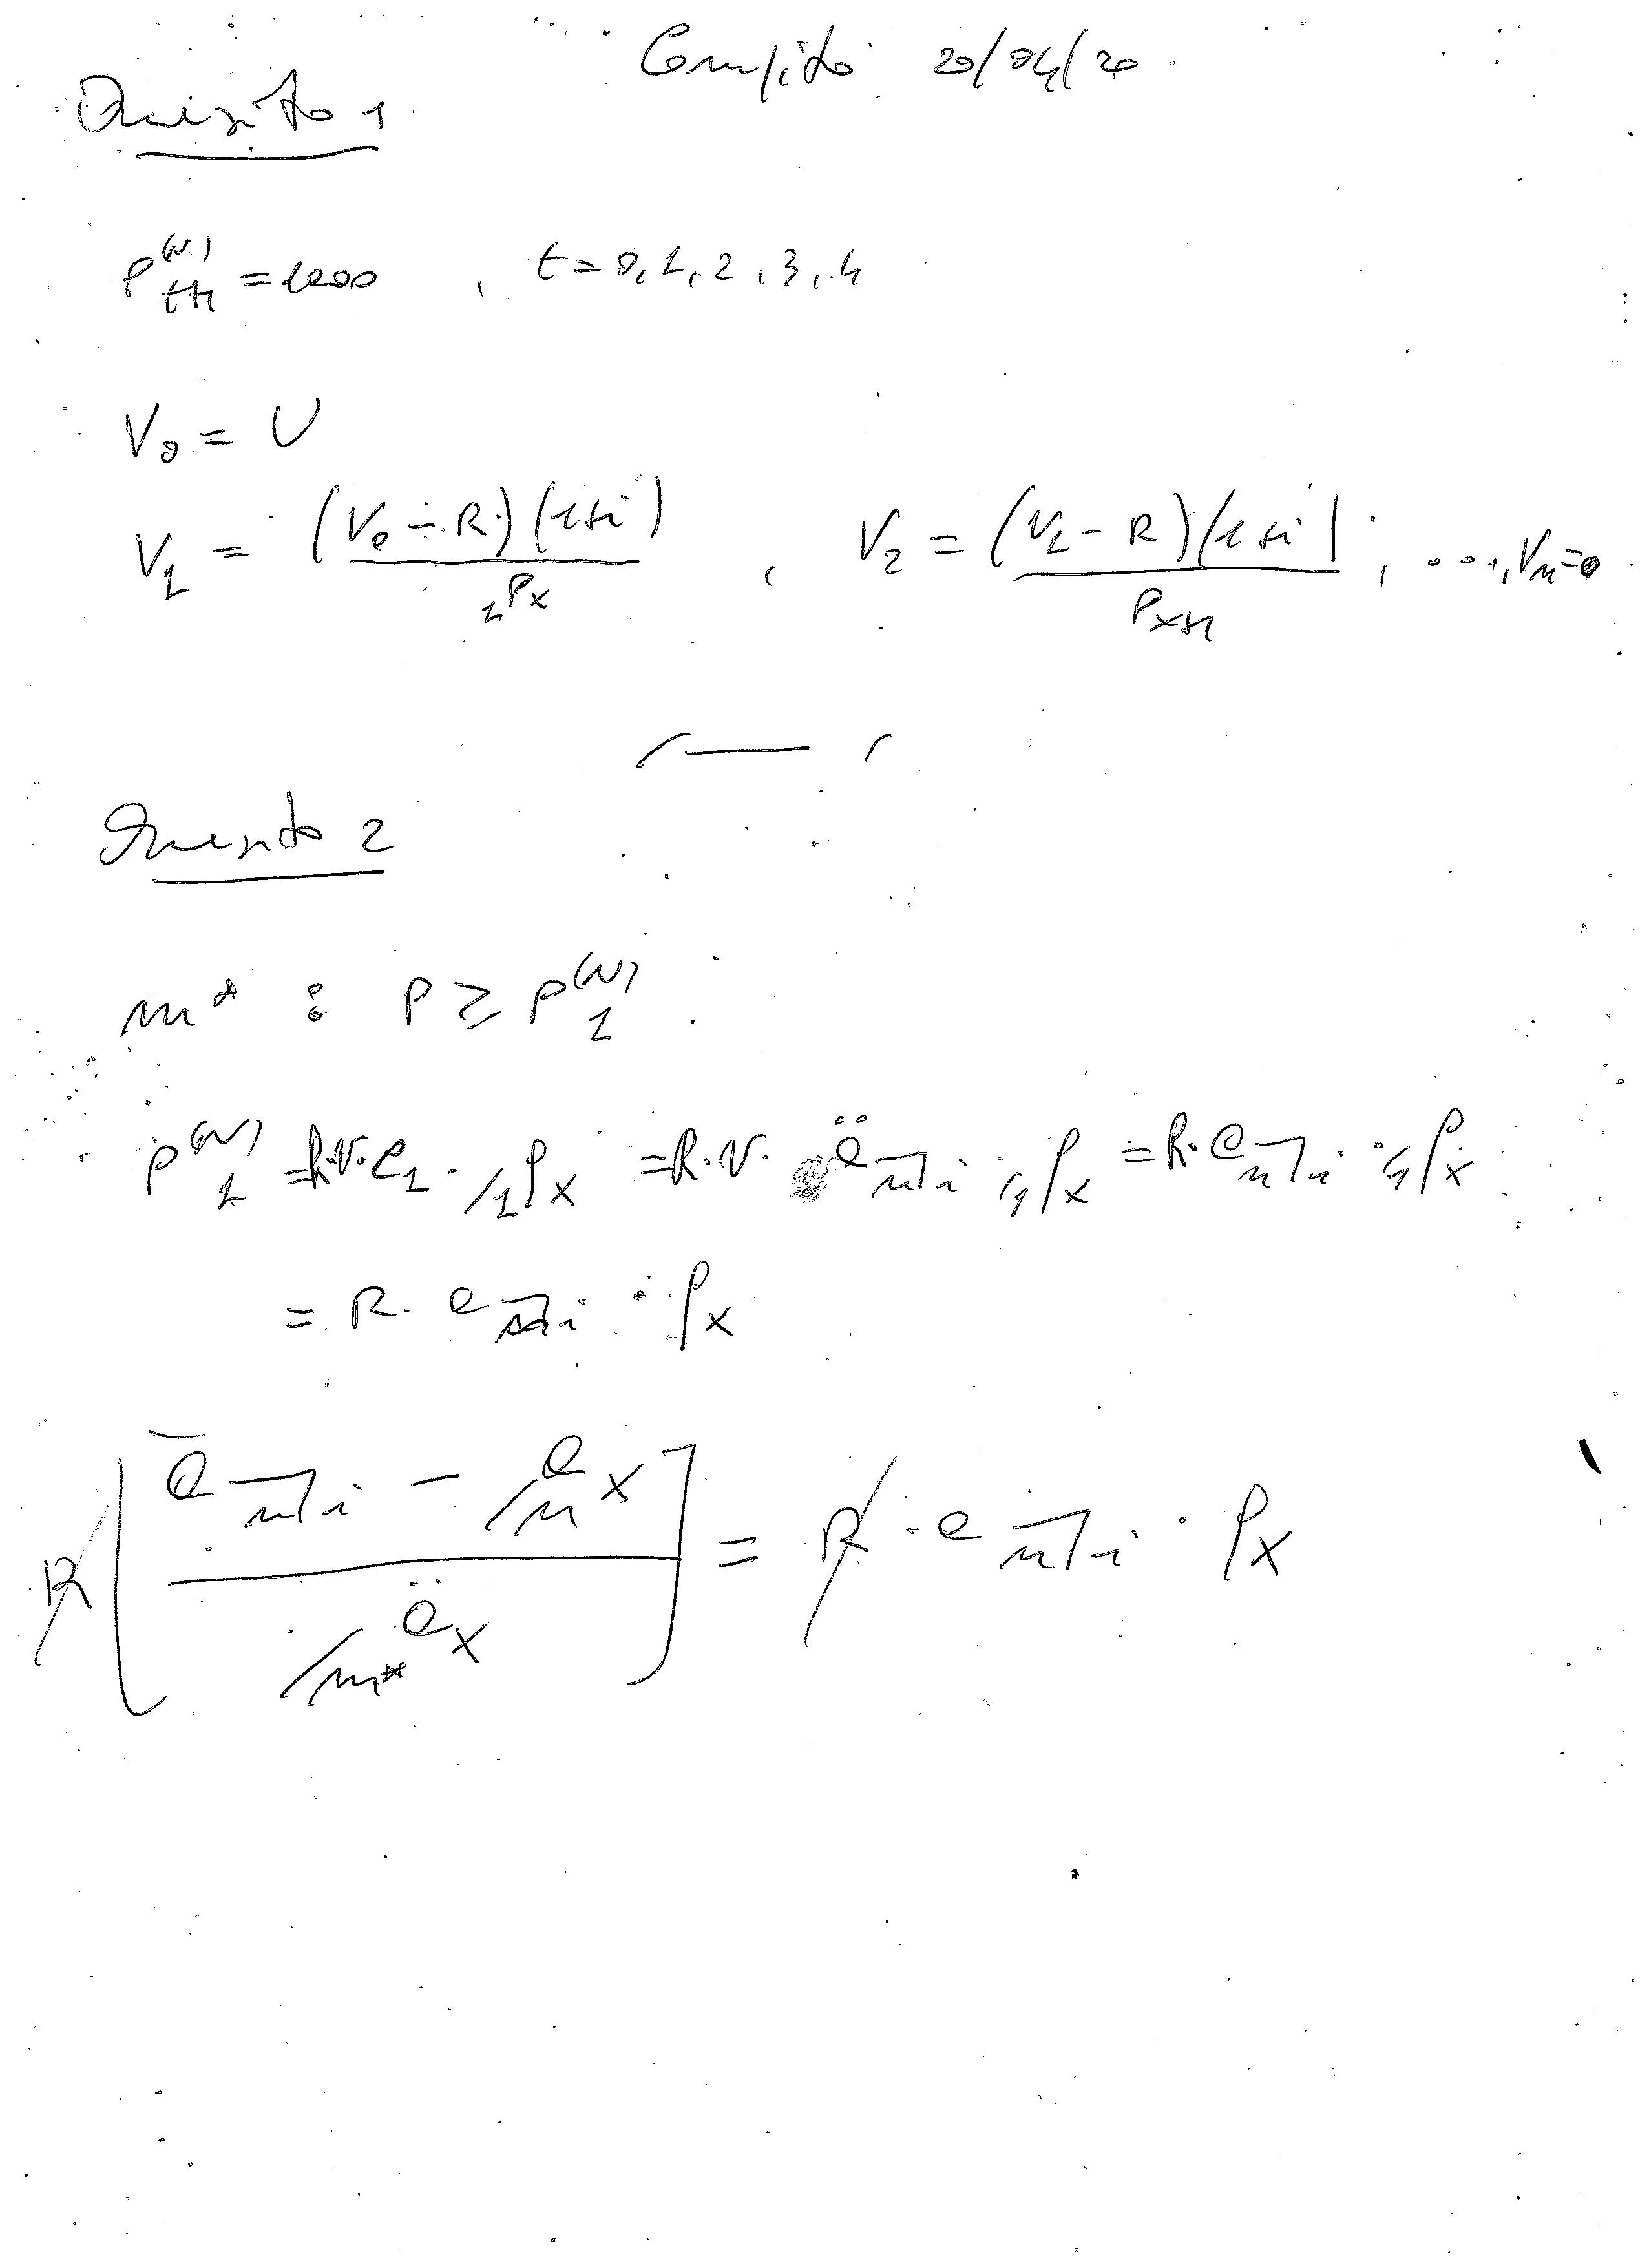 Compito 20/04/20
Quesito 1
P^{(N)}_{t+1} = 1000 , t=0,1,2,3,4
V_0 = U
V_1 = (V_0 - R)(1+i) / _1P_x , V_2 = (V_1 - R)(1+i) / P_{x+1} , ..., V_n=0
Quesito 2
m* : P ≥ P^{(N)}_1
P^{(N)}_1 = R·v· · /1 q_x = R·v· ä_{n⌉i} · /1 q_x = R· a_{n⌉i} · /1 q_x
= R· a_{n⌉i} · q_x
R [ (a_{n⌉i} - /n a_x) / /m* ä_x ] = R · a_{n⌉i} · q_x